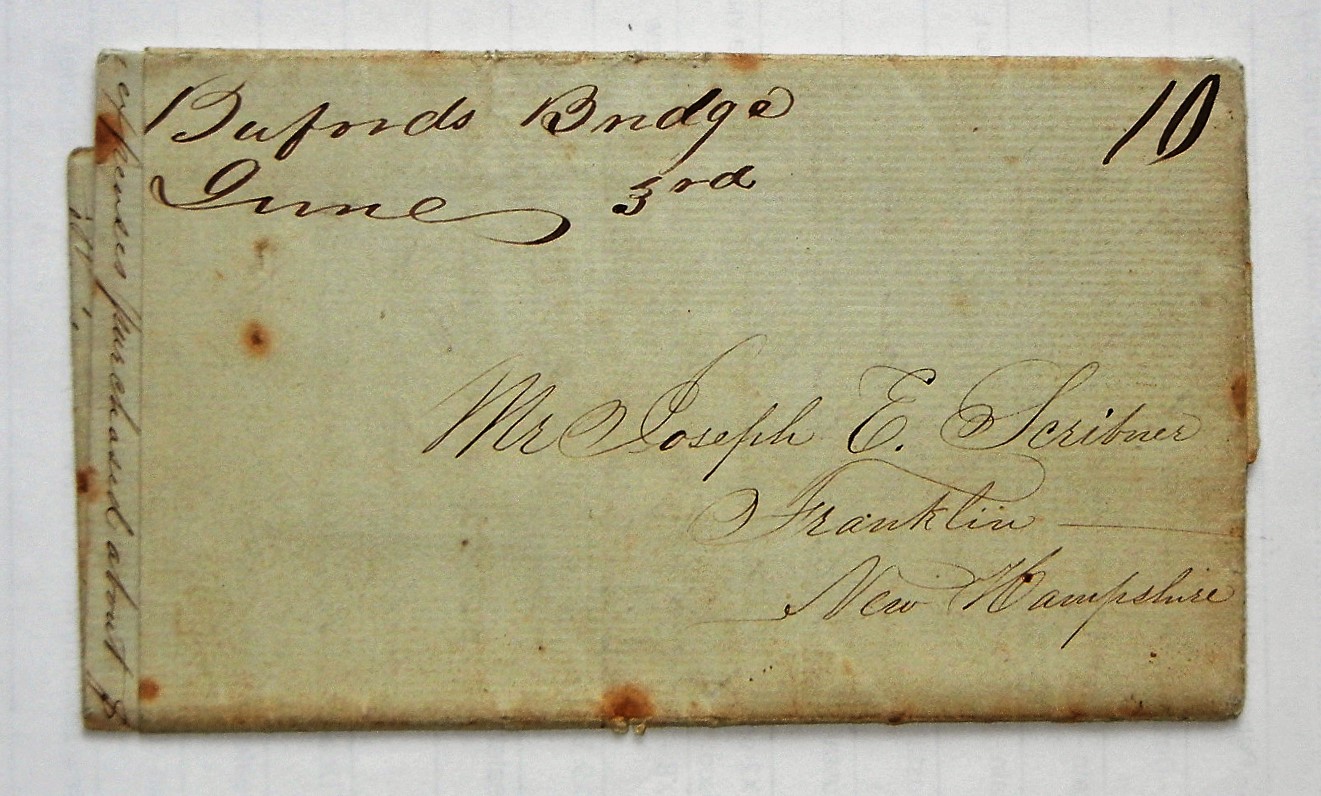 Bufords Bridge
June 3rd
10
Mr Joseph E. Scribner
Franklin
New Hampshire
expenses purchased about